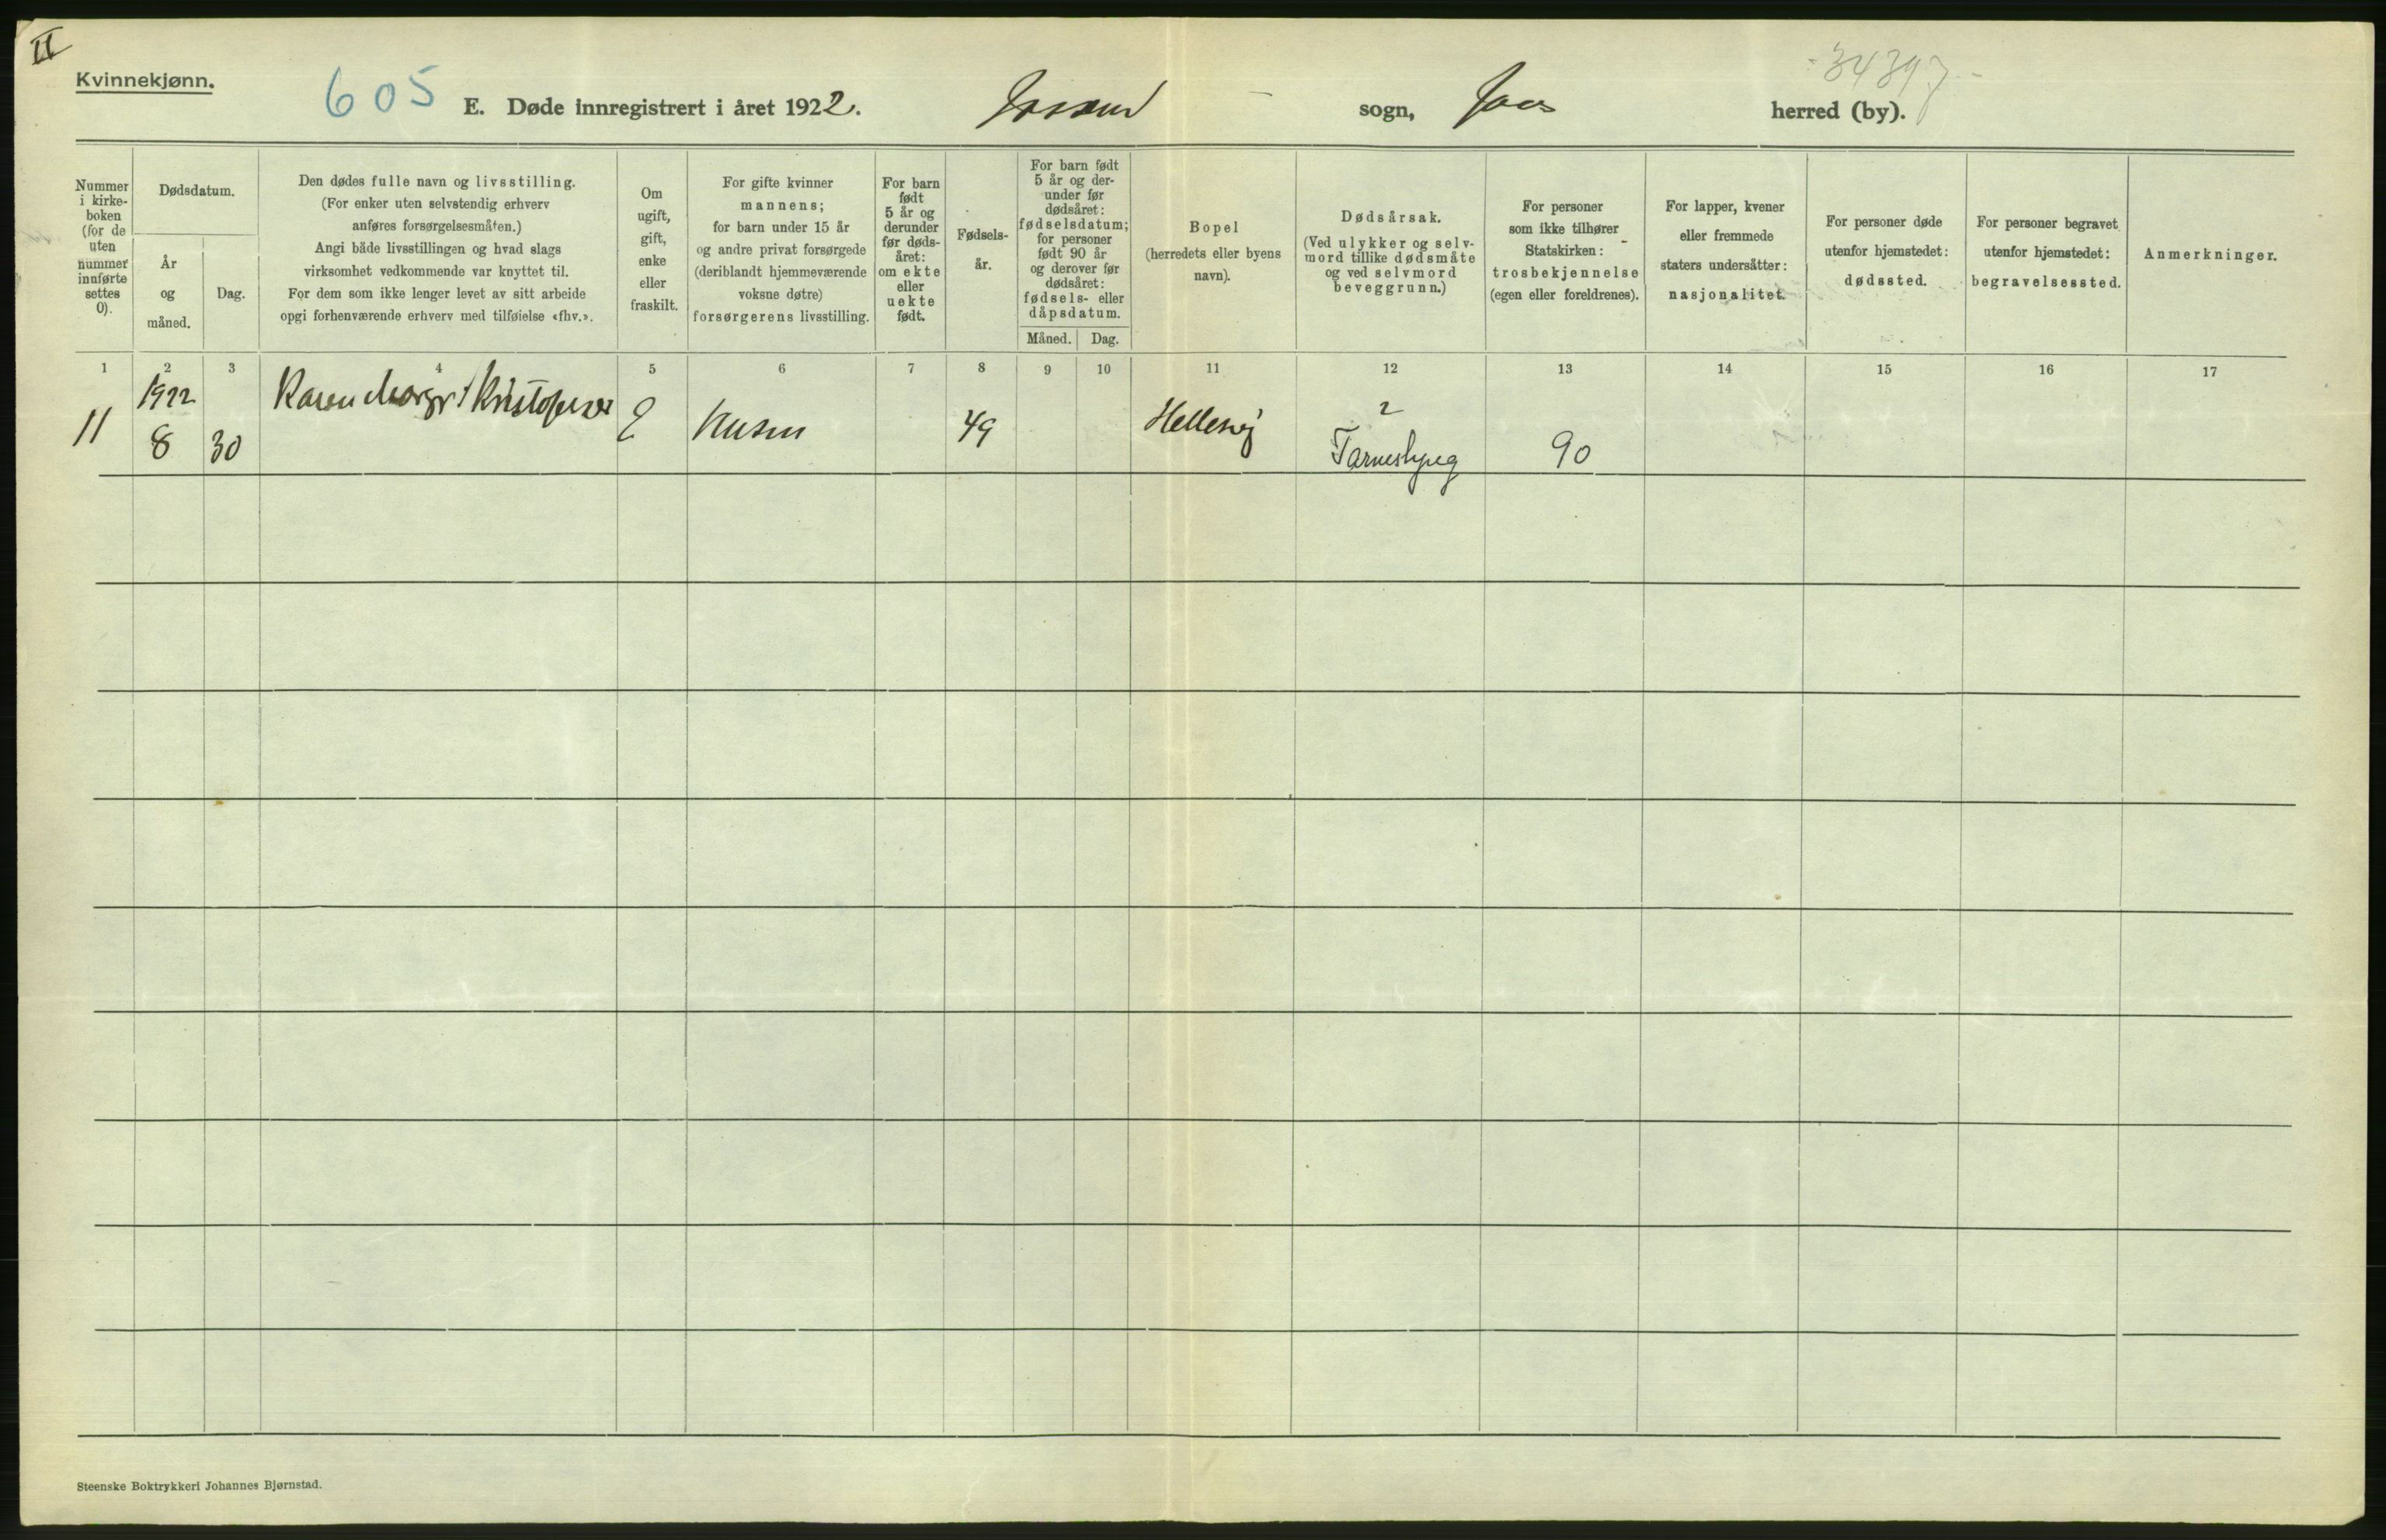 II
Kvinnekjønn.
605
E. Døde innregistrert i året 1922.
sogn,
herred (by).
34397
Nummer
i kirke-
boken
(for de
uten
nummer
innførte
settes
0).
Dødsdatum.
År
og
måned.
Dag.
Den dødes fulle navn og livsstilling.
(For enker uten selvstendig erhverv
anføres forsørgelsesmåten.)
Angi både livsstillingen og hvad slags
virksomhet vedkommende var knyttet til.
For dem som ikke lenger levet av sitt arbeide
opgi forhenværende erhverv med tilføielse «fhv.».
Om
ugift,
gift,
enke
eller
fraskilt.
For gifte kvinner
mannens;
for barn under 15 år
og andre privat forsørgede
(deriblandt hjemmeværende
voksne døtre)
forsørgerens livsstilling.
For barn
født
5 år og
derunder
før døds-
året:
om ekte
eller
uekte
født.
Fødsels-
år.
For barn født
5 år og der-
under før
dødsåret:
fødselsdatum;
for personer
født 90 år
og derover før
dødsåret:
fødsels- eller
dåpsdatum.
Måned. Dag.
Bopel
(herredets eller byens
navn).
Dødsårsak.
(Ved ulykker og selv-
mord tillike dødsmåte
og ved selvmord
beveggrunn.)
For personer
som ikke tilhører
Statskirken:
trosbekjennelse
(egen eller foreldrenes).
For lapper, kvener
eller fremmede
staters undersåtter:
nasjonalitet.
For personer døde
utenfor hjemstedet:
dødssted.
For personer begravet
utenfor hjemstedet:
begravelsessted.
Anmerkninger.
1 2 3 4 5 6 7 8 9 10 11 12 13 14 15 16 17
1922 Karen Margr. Kristofersen 2
11 8 30 E 49 Hellesvij 90
Steenske Boktrykkeri Johannes Bjørnstad.